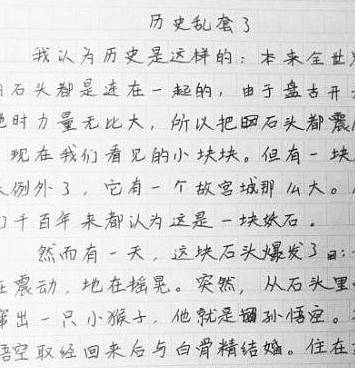 历史乱套了
我认为历史是这样的：本来全世
石头都是连在一起的，由于盘古开
时力量无比大，所以把石头都震
现在我们看见的小块块。但有一块
例外了，它有一个故宫城那么大。
千百年来都认为这是一块妖石。
然而有一天，这块石头爆发了：
在震动，地在摇晃。突然，从石头里
窜出一只小猴子，他就是孙悟空。
悟空取经回来后与白骨精结婚。住在